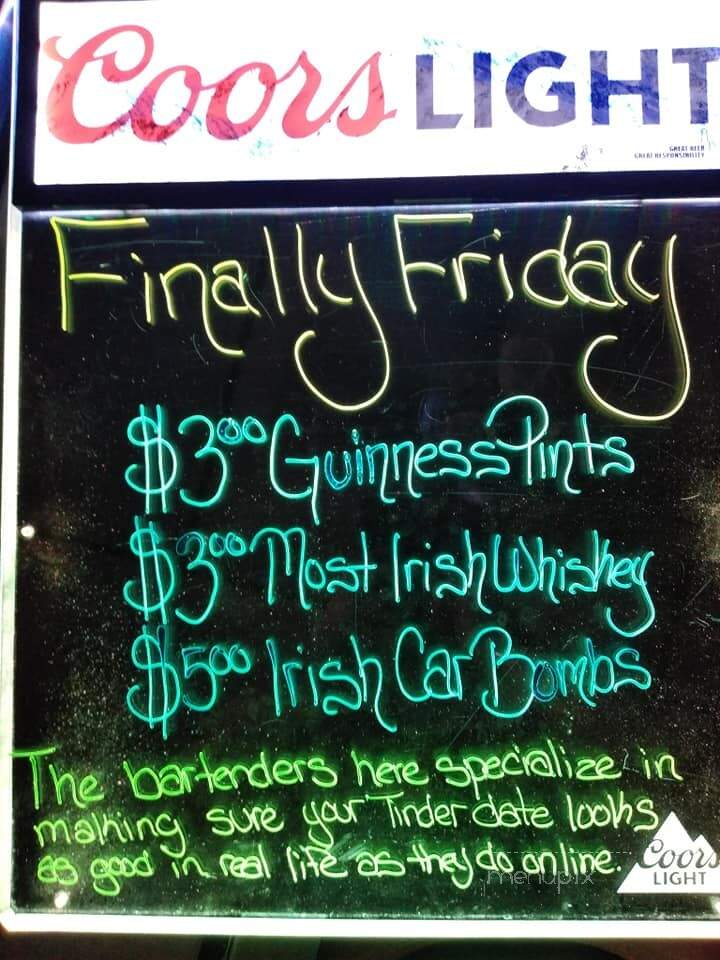 Coors LIGHT
GREAT BEER
GREAT RESPONSIBILITY
Finally Friday
$3.00 Guinness Pints
$3.00 Most Irish Whiskey
$5.00 Irish Car Bombs
The bartenders here specialize in
making sure your Tinder date looks
as good in real life as they do online.
menupix
Coors
LIGHT